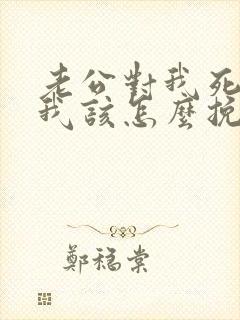 老公對我死
我該怎麼挽
鄭稳棠